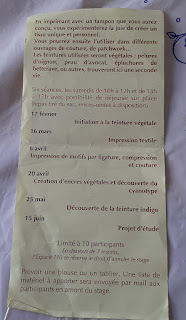 En imprimant avec un tampon que vous aurez
conçu, vous expérimenterez la joie de créer un
tissu unique et personnel.
Vous pourrez ensuite l'utiliser dans différents
ouvrages de couture, de patchwork...
Les teintures utilisées seront végétales : pelures
d'oignon, peau d'avocat, épluchures de
betterave, ou autres, trouveront ici une seconde
vie.
Six séances, les samedis de 10h à 12h et de 13h
à 17h avec possibilité de déjeuner sur place
(repas tiré du sac, micro-ondes à disposition)
17 février
Initiation à la teinture végétale
16 mars
Impression textile
6 avril
Impression de motifs par ligature, compression
et couture
20 avril
Création d'encres végétales et découverte du
cyanotype
25 mai
Découverte de la teinture indigo
15 juin
Projet d'étude
Limité à 10 participants
En dessous de 7 inscrits,
l'Espace 110 se réserve le droit d'annuler le stage
Prévoir une blouse ou un tablier. Une liste de
matériel à apporter sera envoyée par mail aux
participants en amont du stage.